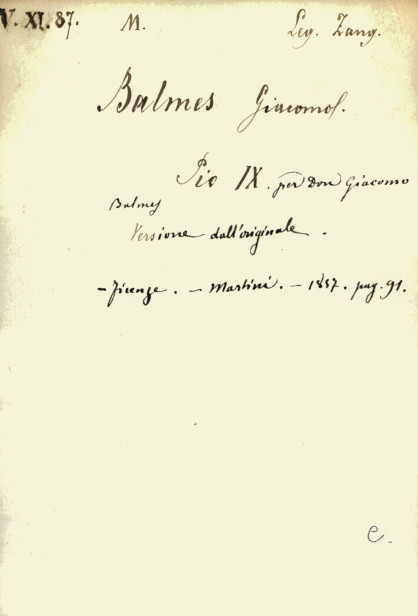 V. XI. 37. M. Leg. Zang.
Balmes Giacomo.
Pio IX. per Don Giacomo
Balmes
Versione dall'originale.
- Firenze. - Martini. - 1857. pag. 91.
C.